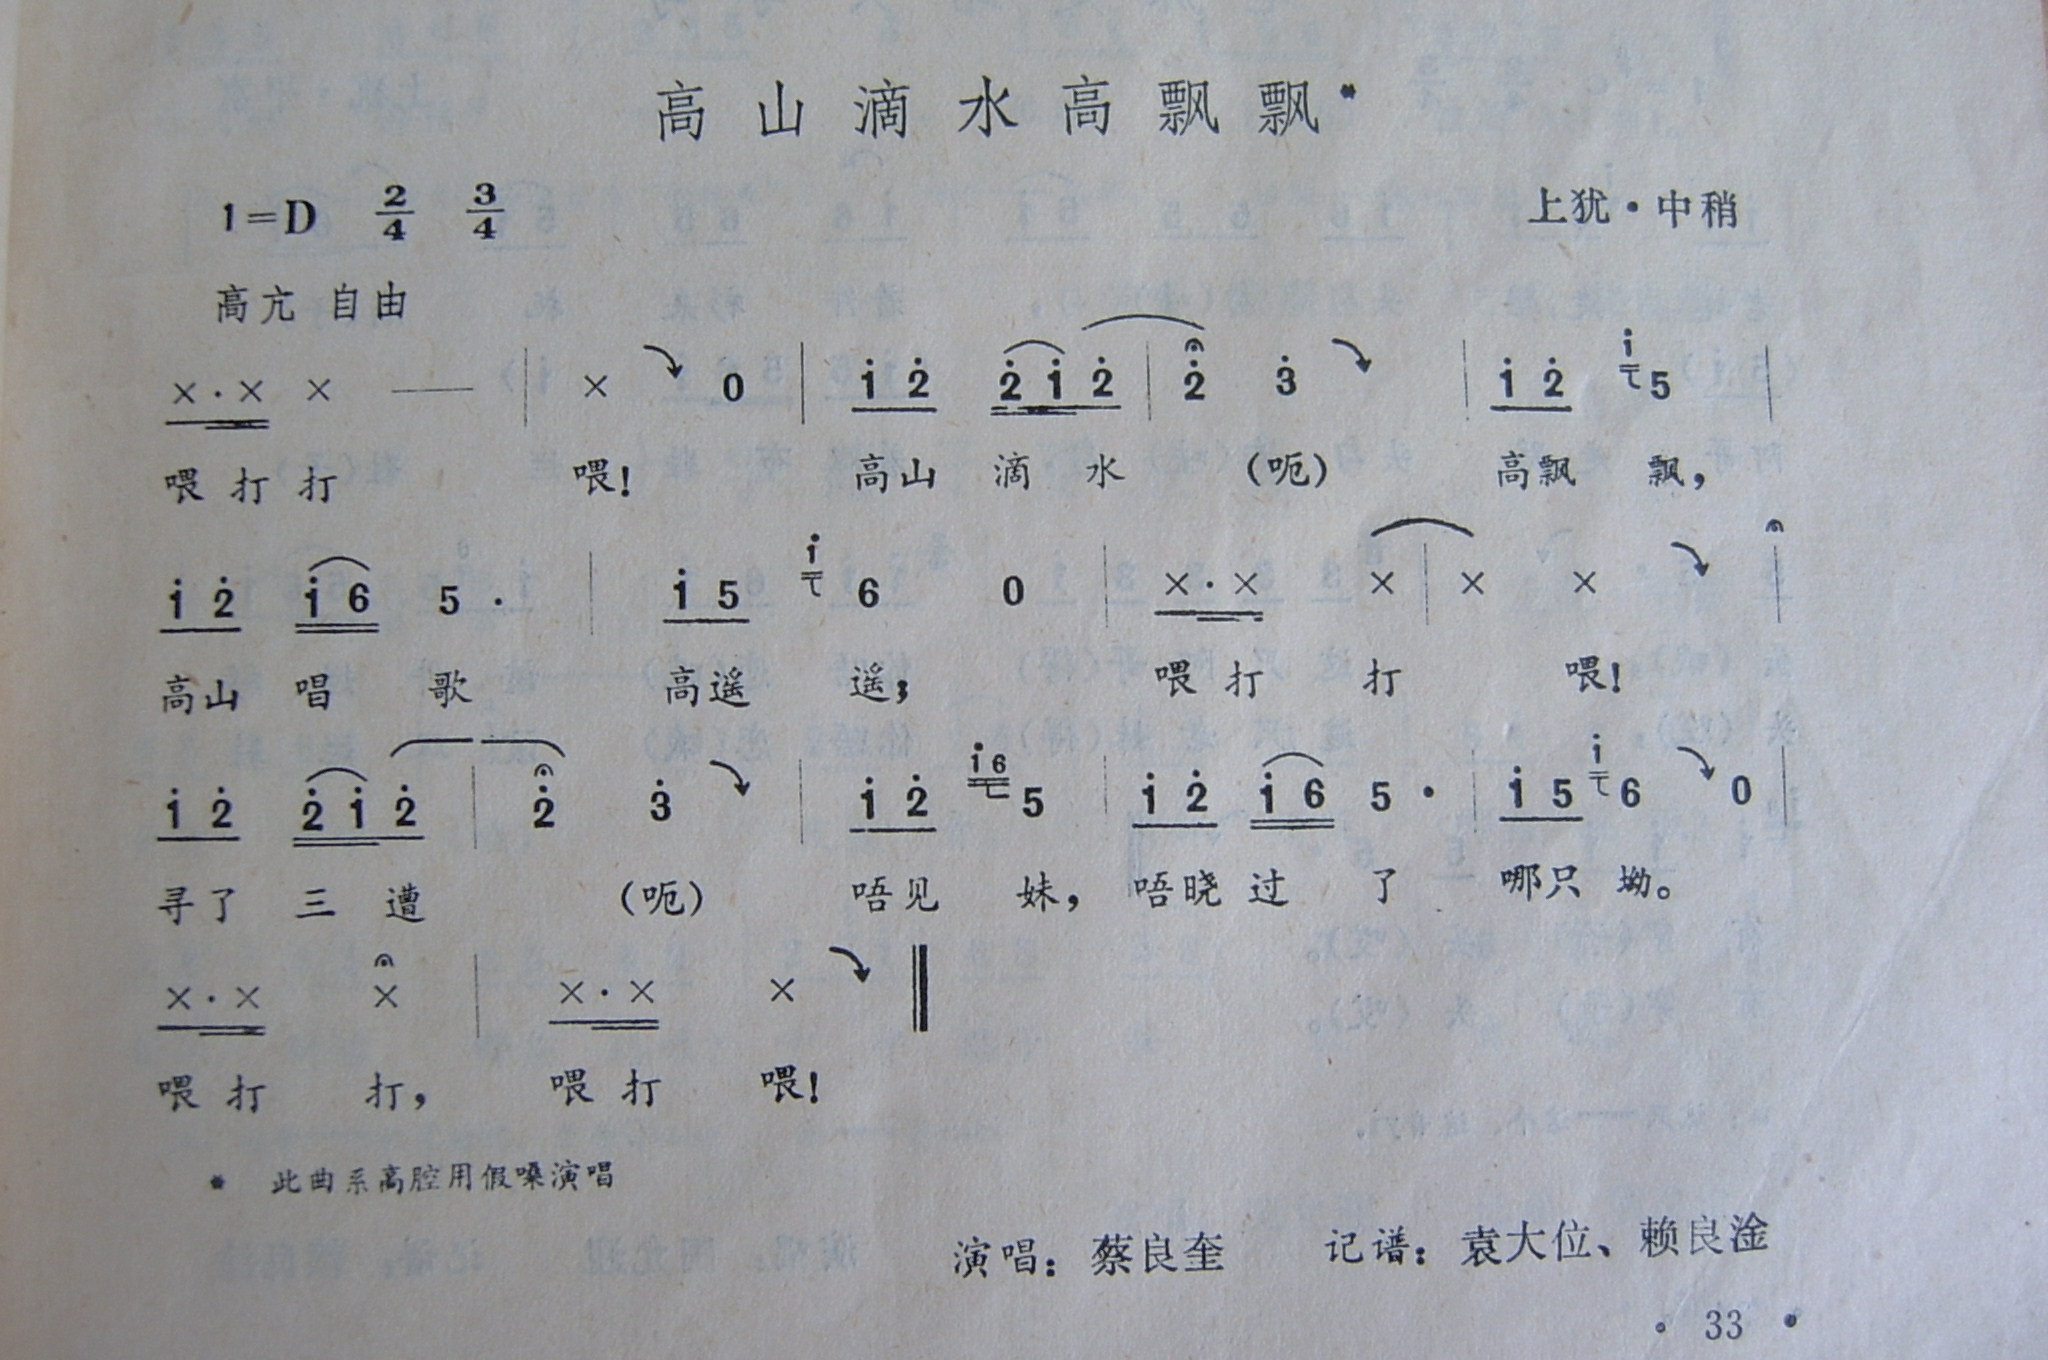 高山滴水高飘飘*
1=D 2/4 3/4 上犹·中稍
高亢 自由
×·× × — | × 0 | i 2̇ 2̇ i 2̇ | 2̇ 3̇ | i 2̇ i 5 |
喂打打 喂! 高山 滴 水 (呃) 高飘 飘,
i 2̇ i 6 5 · | i 5 i 6 0 | ×·× × | × × |
高山 唱 歌 高遥 遥; 喂打 打 喂!
i 2̇ 2̇ i 2̇ | 2̇ 3̇ | i 2̇ i6 5 | i 2̇ i 6 5 · | i 5 i 6 0 |
寻了 三 遭 (呃) 唔见 妹, 唔晓 过 了 哪只 坳。
×·× × | ×·× × ‖
喂打 打, 喂打 喂!
* 此曲系高腔用假嗓演唱
演唱: 蔡良奎 记谱: 袁大位、赖良淦
· 33 ·